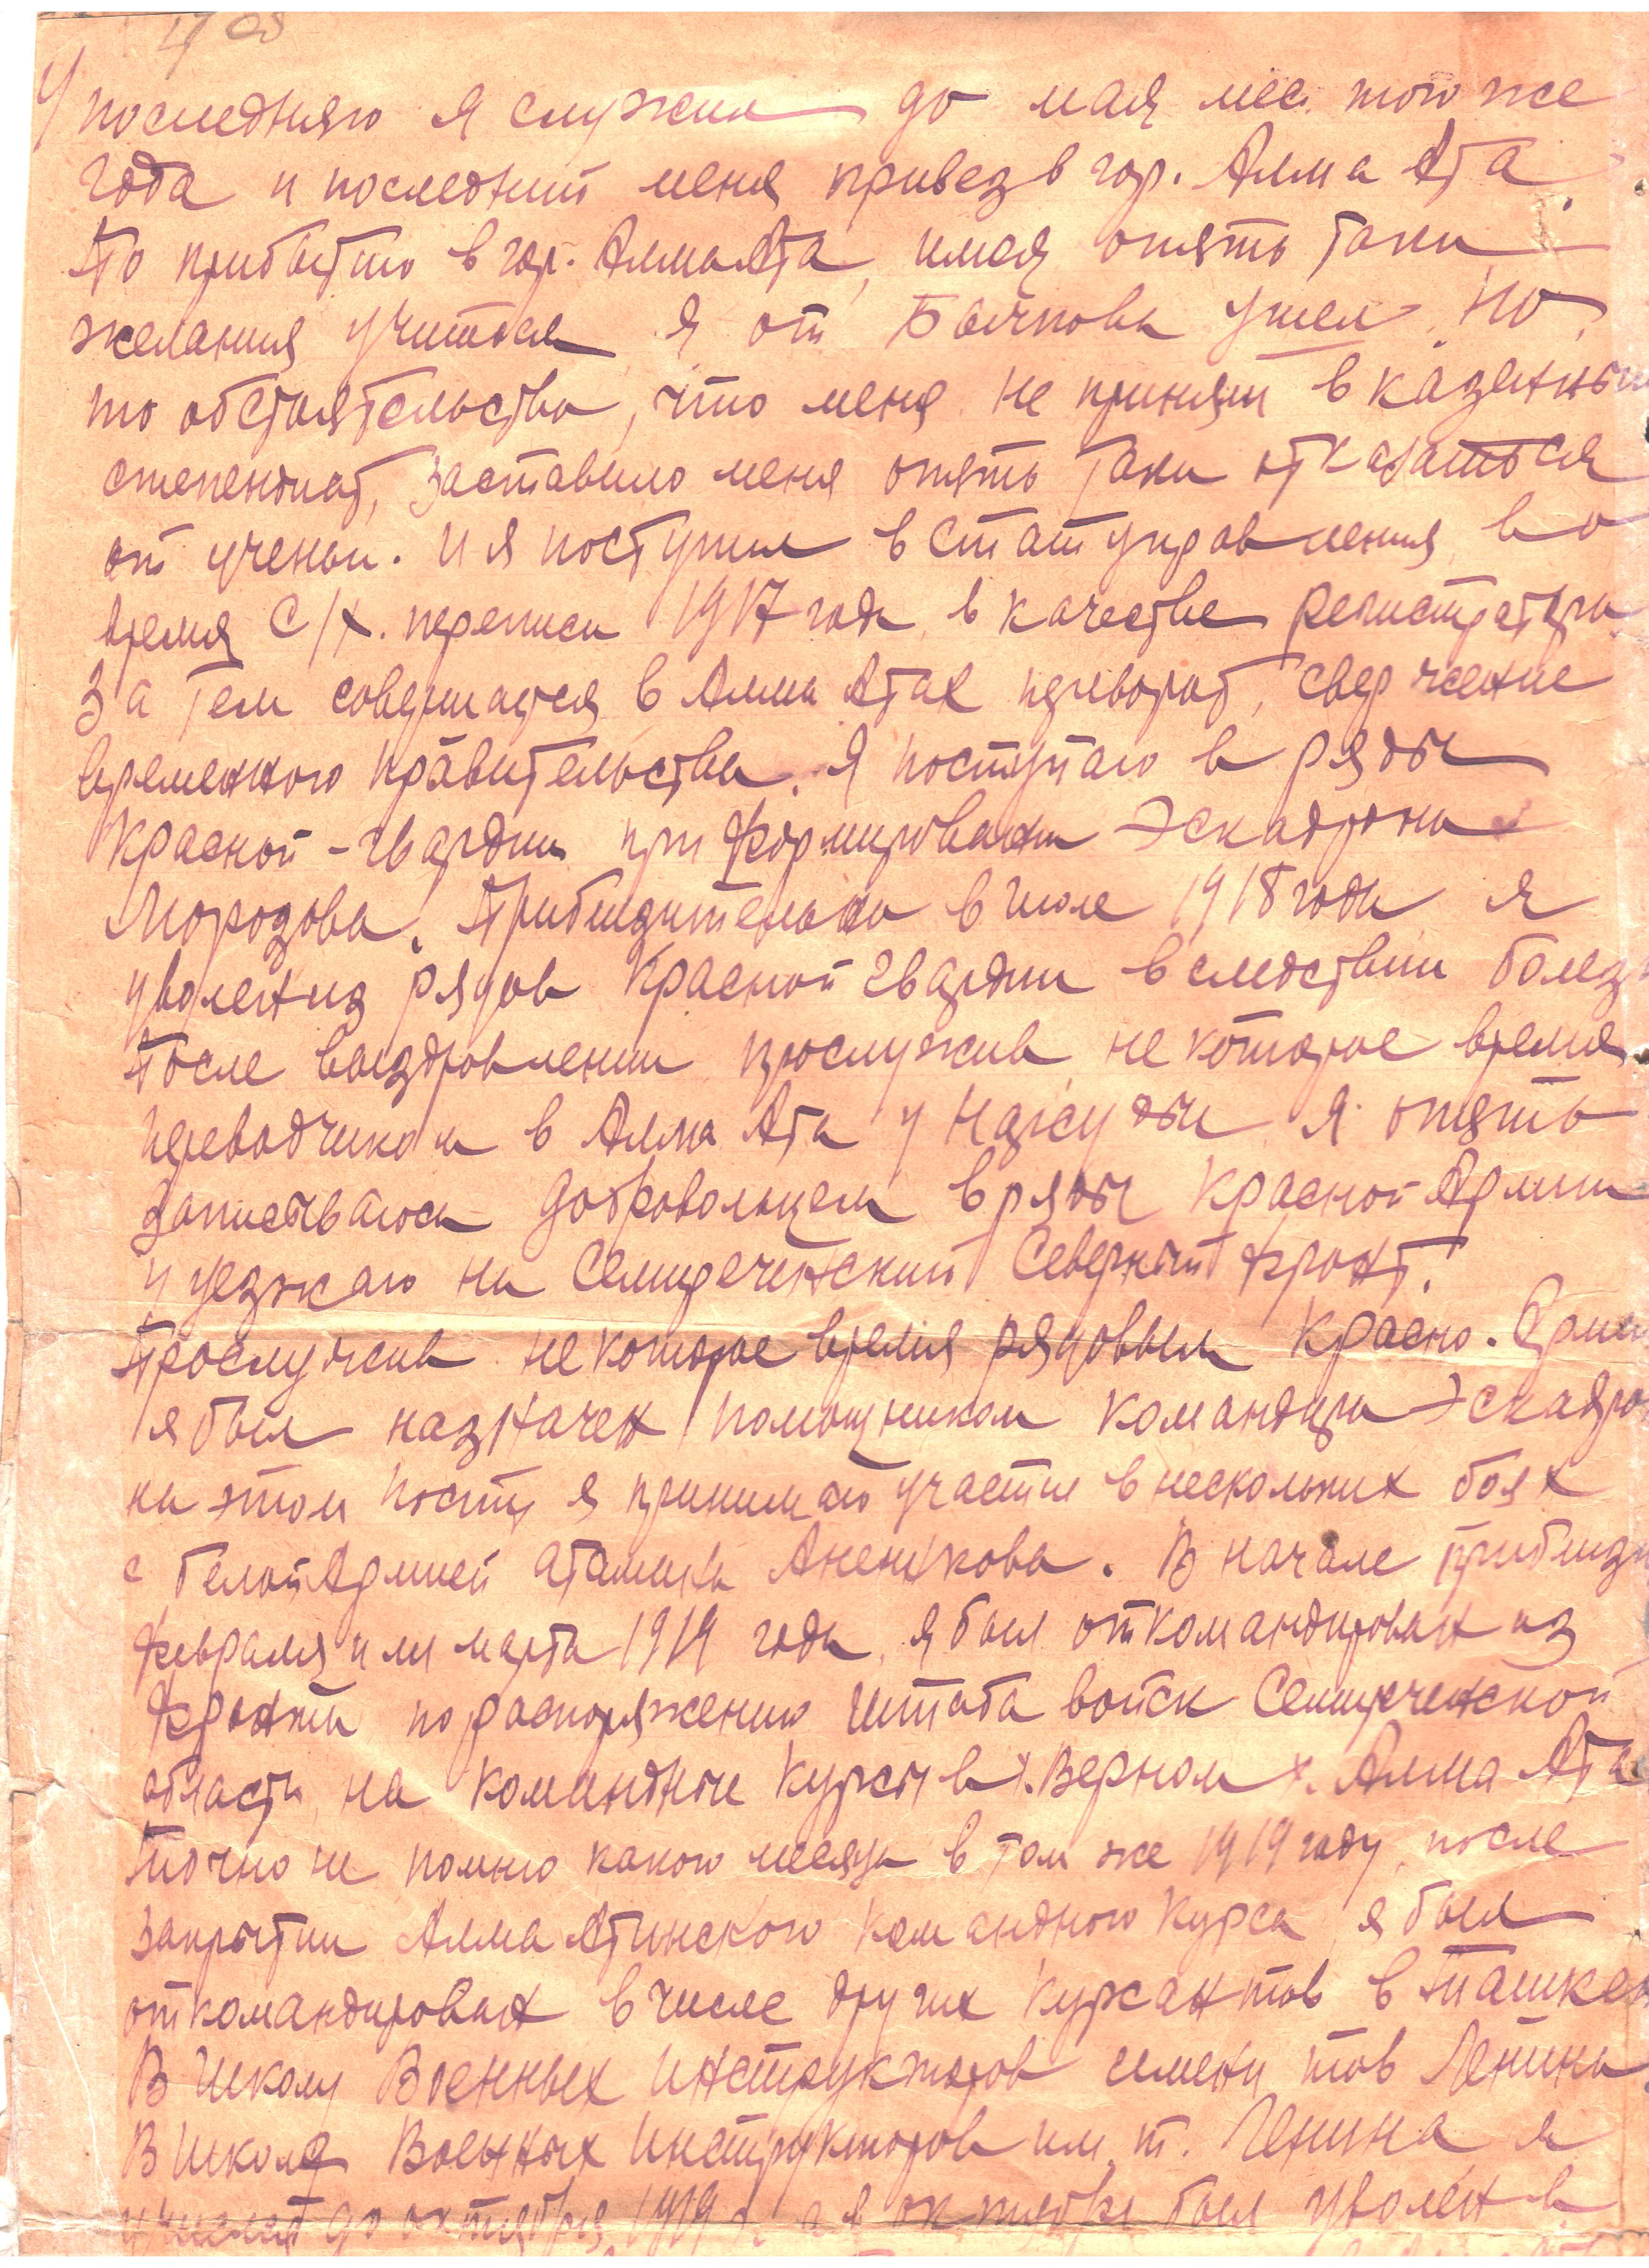 У последняго я служил до мая мес. того же
года и последний меня привез в гор. Алма Ата
По прибытию в гор. Алма Ата, имея опять таки
желания учиться я от Бычкова ушел. Но
то обстоятельства, что меня не приняли в казенный
степендиат, заставило меня опять таки отказаться
от ученьи. И я поступил в Статуправления, во
время С/Х. переписи 1917 года, в качестве регистратора
За тем совершается в Алма Атах переворот, свержение
временного правительства. Я поступаю в ряды
Красной-гвардии при формировании Эскадрона
Морозова. Приблизительно в июле 1918 года я
уволен из рядов Красной гвардии вследствии болез
После выздоровлении прослужив некоторое время
переводчиком в Алма Ата у Нарсудьи я опять
записываюсь добровольцем в ряды Красной Армии
и уезжаю на Семиреченский Северный фронт.
Прослужив некоторое время рядовым Красно. Арми
я был назначен помощником командира Эскадро
на этом посту я принимаю участие в нескольких боях
с белой Армией атамана Аненкова. В начале приблизи
февраля или марта 1919 года, я был откомандирован из
фронта по распоряжению Штаба войск Семиреченской
области, на командные курсы в г. Верном г. Алма Ата
Точно не помню какого месяца в том же 1919 году, после
закрытии Алма Атинского командного курса, я был
откомандирован в числе других курсантов в Ташкен
В Школу Военных Инструкторов имени тов Ленина.
В Школа Военных Инструкторов им. т. Ленина я
учился до октября 1919 г. а в октябре был уволен в